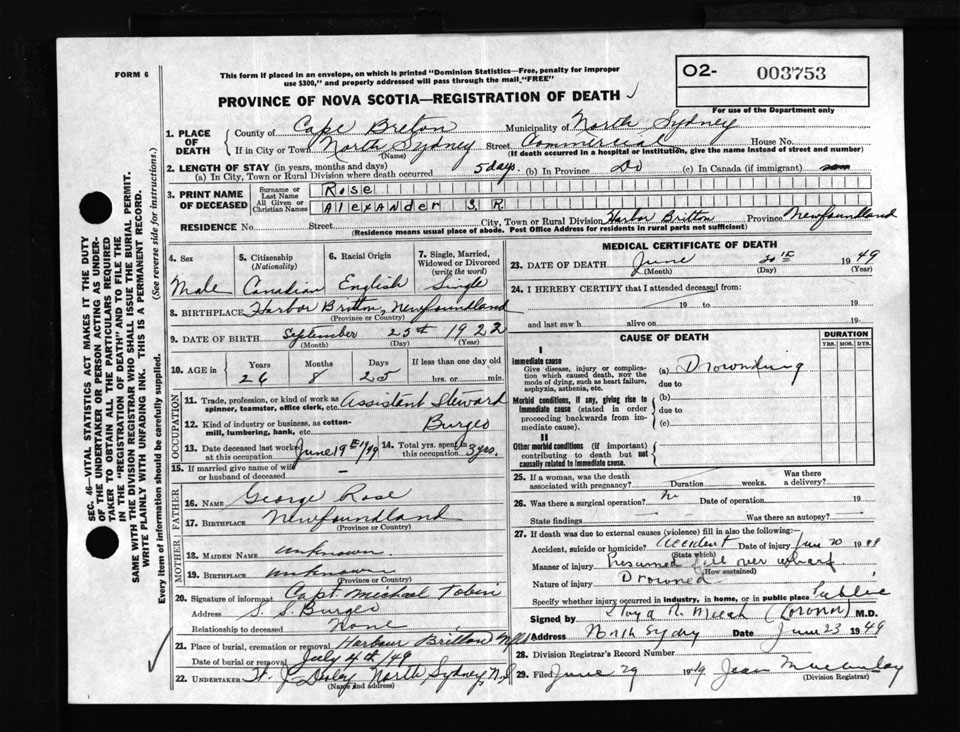 FORM 6
This form if placed in an envelope, on which is printed "Dominion Statistics—Free, penalty for improper
use $300," and properly addressed will pass through the mail "FREE"
O2- 003753
PROVINCE OF NOVA SCOTIA—REGISTRATION OF DEATH
For use of the Department only
1. PLACE OF DEATH County of Cape Breton Municipality of North Sydney
If in City or Town North Sydney (Name) Street Commercial House No.
(If death occurred in a hospital or institution, give the name instead of street and number)
2. LENGTH OF STAY (in years, months and days)
(a) In City, Town or Rural Division where death occurred 5 days. (b) In Province Do (c) In Canada (if immigrant)
3. PRINT NAME OF DECEASED Surname or Last Name Rose
All Given or Christian Names Alexander S. R.
RESIDENCE No. Street City, Town or Rural Division Harbor Britton Province Newfoundland
(Residence means usual place of abode. Post Office Address for residents in rural parts not sufficient)
SEC. 46—VITAL STATISTICS ACT MAKES IT THE DUTY
OF THE UNDERTAKER OR PERSON ACTING AS UNDER-
TAKER TO OBTAIN ALL THE PARTICULARS REQUIRED
IN THE "REGISTRATION OF DEATH" AND TO FILE THE
SAME WITH THE DIVISION REGISTRAR WHO SHALL ISSUE THE BURIAL PERMIT.
WRITE PLAINLY WITH UNFADING INK. THIS IS A PERMANENT RECORD.
Every item of information should be carefully supplied. (See reverse side for instructions.)
4. Sex 5. Citizenship (Nationality) 6. Racial Origin 7. Single, Married, Widowed or Divorced (write the word)
Male Canadian English Single
8. BIRTHPLACE Harbor Britton, Newfoundland
(Province or Country)
9. DATE OF BIRTH September 25th 1922
(Month) (Day) (Year)
10. AGE in Years Months Days If less than one day old
26 8 25 hrs. or min.
OCCUPATION
11. Trade, profession, or kind of work as spinner, teamster, office clerk, etc. Assistant Steward
12. Kind of industry or business, as cotton-mill, lumbering, bank, etc. Burgeo
13. Date deceased last worked at this occupation June 19th/49 14. Total yrs. spent in this occupation 3 yrs.
15. If married give name of wife or husband of deceased —
FATHER
16. NAME George Rose
17. BIRTHPLACE Newfoundland
(Province or Country)
MOTHER
18. MAIDEN NAME unknown.
19. BIRTHPLACE unknown
(Province or Country)
20. Signature of informant Capt. Michael Tobin
Address S. S. Burgeo
Relationship to deceased None
21. Place of burial, cremation or removal Harbour Britton Nfld
Date of burial or removal July 4th/49
22. UNDERTAKER North Sydney, N.S
(Name and address)
MEDICAL CERTIFICATE OF DEATH
23. DATE OF DEATH June 20 1949
(Month) (Day) (Year)
24. I HEREBY CERTIFY that I attended deceased from:
19 to 19
and last saw h alive on 19
CAUSE OF DEATH DURATION
YRS. MOS. DYS.
I
Immediate cause
Give disease, injury or complication which caused death, not the mode of dying, such as heart failure, asphyxia, asthenia, etc.
(a) Drownding
due to
Morbid conditions, if any, giving rise to immediate cause (stated in order proceeding backwards from immediate cause).
(b)
due to
(c)
II
Other morbid conditions (if important) contributing to death but not causally related to immediate cause.
25. If a woman, was the death associated with pregnancy? Duration weeks. Was there a delivery?
26. Was there a surgical operation? no Date of operation 19
State findings Was there an autopsy?
27. If death was due to external causes (violence) fill in also the following:
Accident, suicide or homicide? Accident Date of injury June 20 1949
(State which)
Manner of injury Presumed fell over wharf
(How sustained)
Nature of injury Drowned
Specify whether injury occurred in industry, in home, or in public place Public
Signed by (Coroner) M.D.
Address North Sydney Date June 23 1949
28. Division Registrar's Record Number
29. Filed June 29 1949 Jean
(Division Registrar)